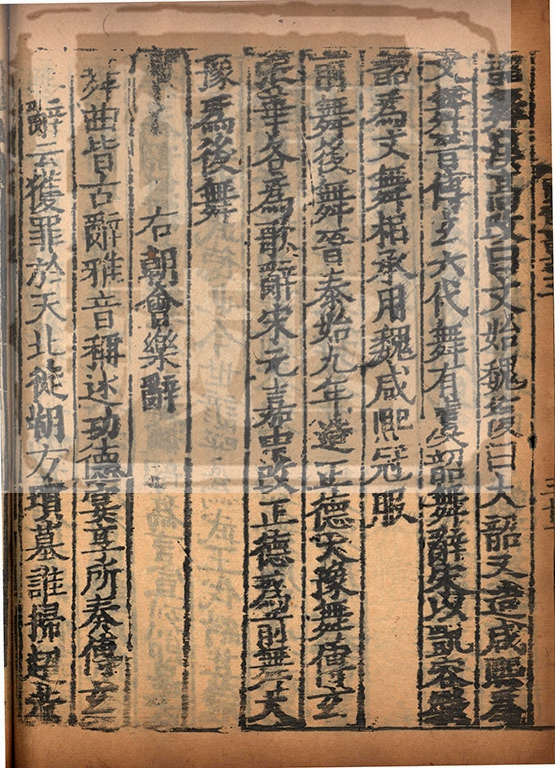 韶舞漢高改曰文始魏復曰大韶又造咸熙爲
文舞晉傅玄六代舞有虞韶舞辭宋改凱容
韶爲文舞相承用魏咸熙冠服
前舞後舞晉泰始九年造正德大豫舞傅玄
張華各爲歌辭宋元嘉中改正德爲前舞大
豫爲後舞
右朝會樂辭
舞曲皆古辭雅音稱述功德宴享所奏傅玄
辭云獲罪於天北徙朔方墳墓誰掃超若